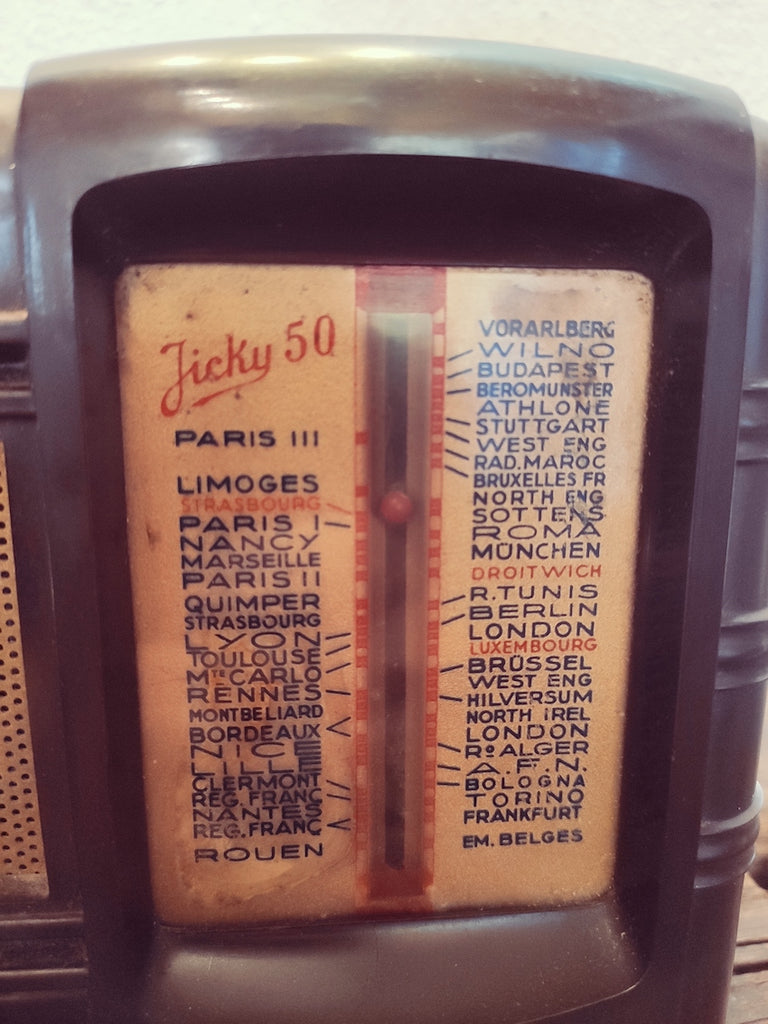 Jicky 50
PARIS III
LIMOGES
STRASBOURG
PARIS I
NANCY
MARSEILLE
PARIS II
QUIMPER
STRASBOURG
LYON
TOULOUSE
MTE CARLO
RENNES
MONTBELIARD
BORDEAUX
NICE
LILLE
CLERMONT
REG. FRANC
NANTES
REG. FRANC
ROUEN
VORARLBERG
WILNO
BUDAPEST
BEROMUNSTER
ATHLONE
STUTTGART
WEST ENG
RAD. MAROC
BRUXELLES FR
NORTH ENG
SOTTENS
ROMA
MÜNCHEN
DROITWICH
R. TUNIS
BERLIN
LONDON
LUXEMBOURG
BRÜSSEL
WEST ENG
HILVERSUM
NORTH IREL
LONDON
Ro ALGER
A.F.N.
BOLOGNA
TORINO
FRANKFURT
EM. BELGES